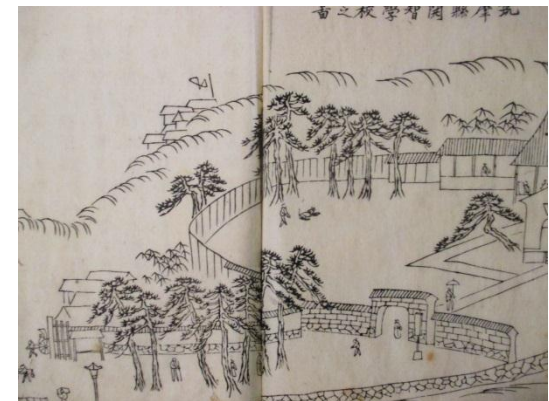 筑摩縣開智學校之啚